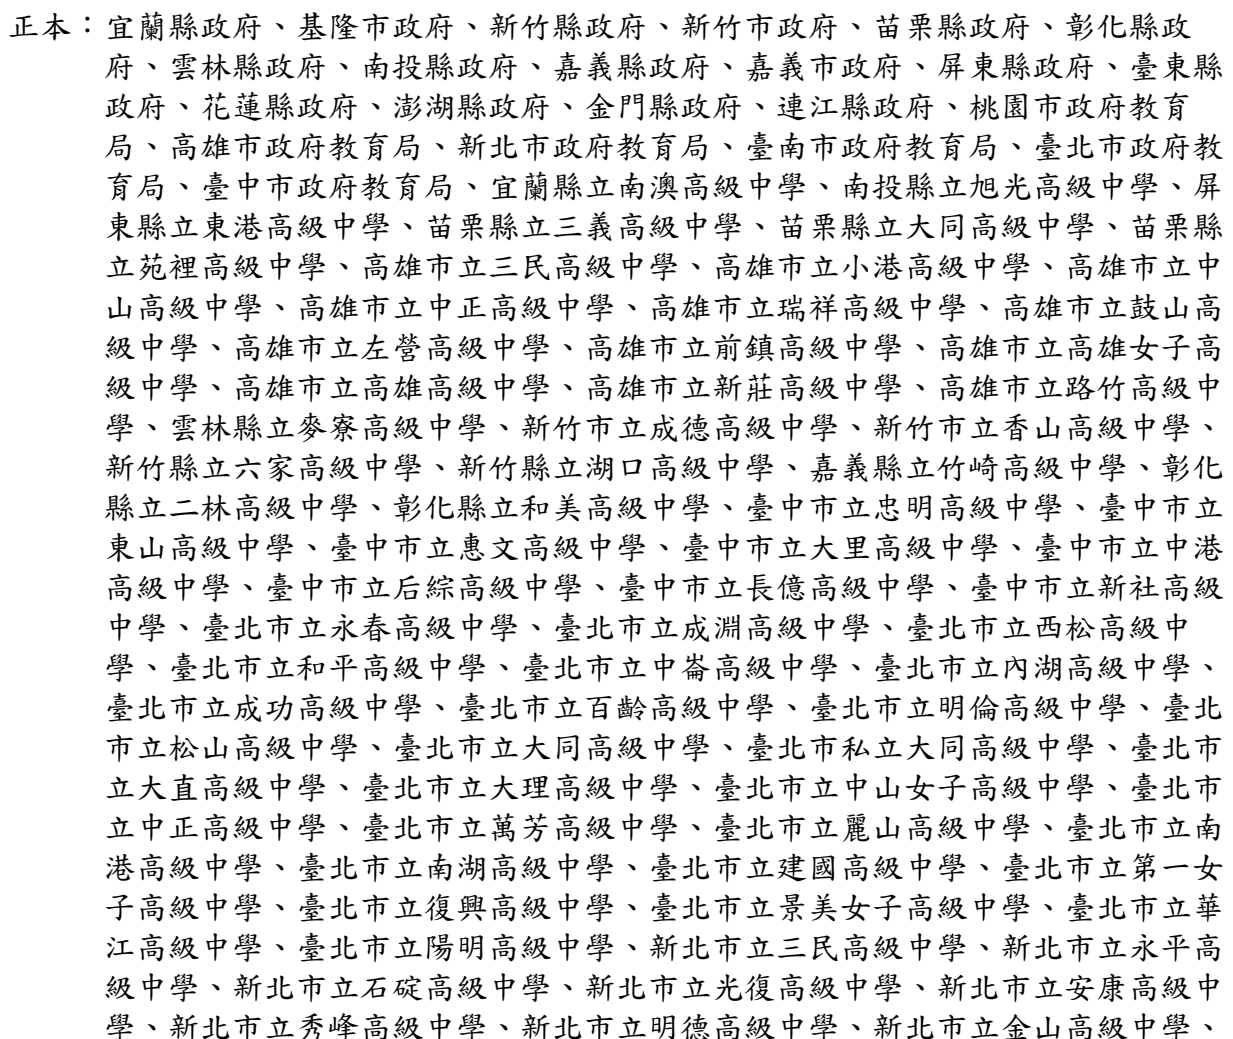 正本：宜蘭縣政府、基隆市政府、新竹縣政府、新竹市政府、苗栗縣政府、彰化縣政
府、雲林縣政府、南投縣政府、嘉義縣政府、嘉義市政府、屏東縣政府、臺東縣
政府、花蓮縣政府、澎湖縣政府、金門縣政府、連江縣政府、桃園市政府教育
局、高雄市政府教育局、新北市政府教育局、臺南市政府教育局、臺北市政府教
育局、臺中市政府教育局、宜蘭縣立南澳高級中學、南投縣立旭光高級中學、屏
東縣立東港高級中學、苗栗縣立三義高級中學、苗栗縣立大同高級中學、苗栗縣
立苑裡高級中學、高雄市立三民高級中學、高雄市立小港高級中學、高雄市立中
山高級中學、高雄市立中正高級中學、高雄市立瑞祥高級中學、高雄市立鼓山高
級中學、高雄市立左營高級中學、高雄市立前鎮高級中學、高雄市立高雄女子高
級中學、高雄市立高雄高級中學、高雄市立新莊高級中學、高雄市立路竹高級中
學、雲林縣立麥寮高級中學、新竹市立成德高級中學、新竹市立香山高級中學、
新竹縣立六家高級中學、新竹縣立湖口高級中學、嘉義縣立竹崎高級中學、彰化
縣立二林高級中學、彰化縣立和美高級中學、臺中市立忠明高級中學、臺中市立
東山高級中學、臺中市立惠文高級中學、臺中市立大里高級中學、臺中市立中港
高級中學、臺中市立后綜高級中學、臺中市立長億高級中學、臺中市立新社高級
中學、臺北市立永春高級中學、臺北市立成淵高級中學、臺北市立西松高級中
學、臺北市立和平高級中學、臺北市立中崙高級中學、臺北市立內湖高級中學、
臺北市立成功高級中學、臺北市立百齡高級中學、臺北市立明倫高級中學、臺北
市立松山高級中學、臺北市立大同高級中學、臺北市私立大同高級中學、臺北市
立大直高級中學、臺北市立大理高級中學、臺北市立中山女子高級中學、臺北市
立中正高級中學、臺北市立萬芳高級中學、臺北市立麗山高級中學、臺北市立南
港高級中學、臺北市立南湖高級中學、臺北市立建國高級中學、臺北市立第一女
子高級中學、臺北市立復興高級中學、臺北市立景美女子高級中學、臺北市立華
江高級中學、臺北市立陽明高級中學、新北市立三民高級中學、新北市立永平高
級中學、新北市立石碇高級中學、新北市立光復高級中學、新北市立安康高級中
學、新北市立秀峰高級中學、新北市立明德高級中學、新北市立金山高級中學、